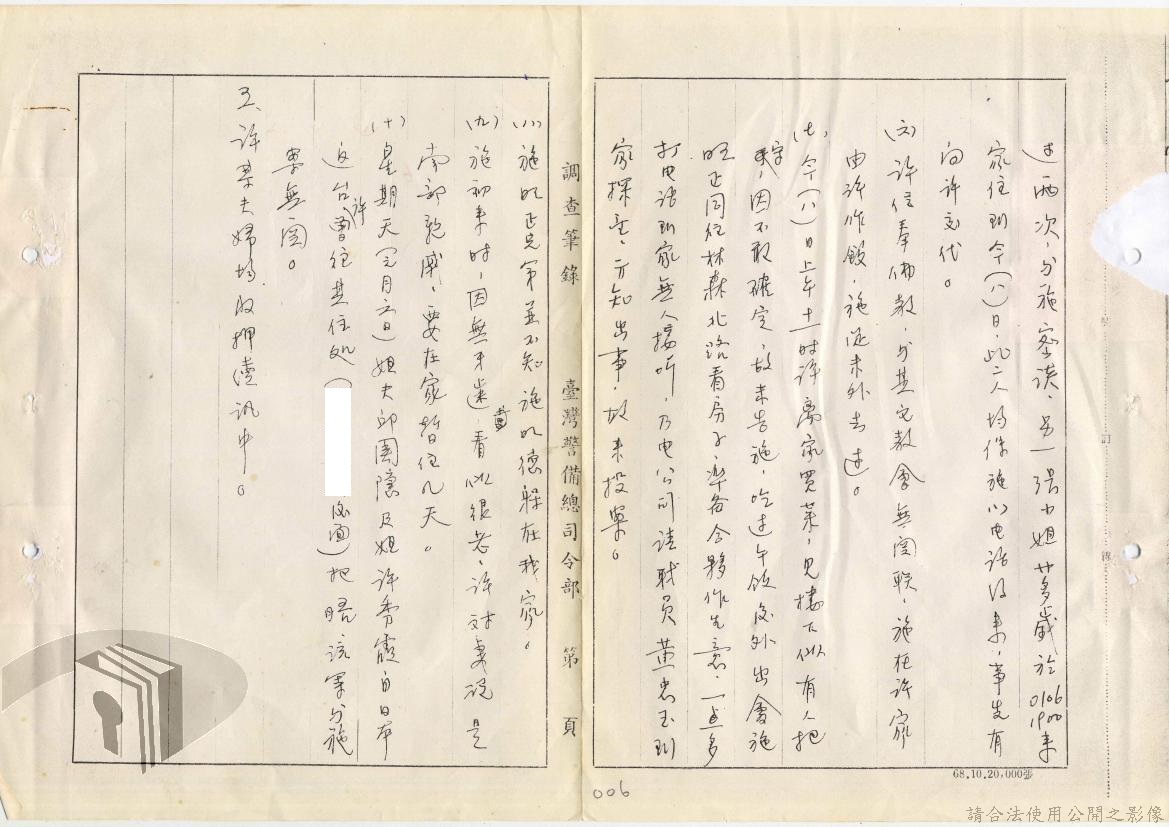 过兩次，与施密談，另一張小姐廿多歲於0106 1900来
家住到今(八)日，此二人均係施以电话後来，事先有
向许交代。
(六)许信奉佛教，与其它教會無関联，施在许家
由许作飯，施從未外去过。
(七)今(八)日上午十一時许离家買菜，見樓下似有人把
守，因不敢確定，故未告施，吃过午饭後外出會施
旺正同往林森北路看房子，準备合夥作生意，一点多
打电话到家無人接听，乃电公司請职員黄忠玉到
家探查，方知出事，故来投案。
調查筆錄 臺灣警備總司令部 第 頁
(八)施明正兄弟並不知施明德躲在我家。
(九)施初来時，因無牙齒，看似很老，许对妻说是
南部親戚，要在家暫住几天。
(十)星期天(元月六日)姐夫邱國隱及姐许秀霞自日本
返台，许曾往其住处
後面)把晤，該案与施
案無関。
五、许某夫婦均收押漬訊中。
006
68.10.20,000張
訂
線
請合法使用公開之影像